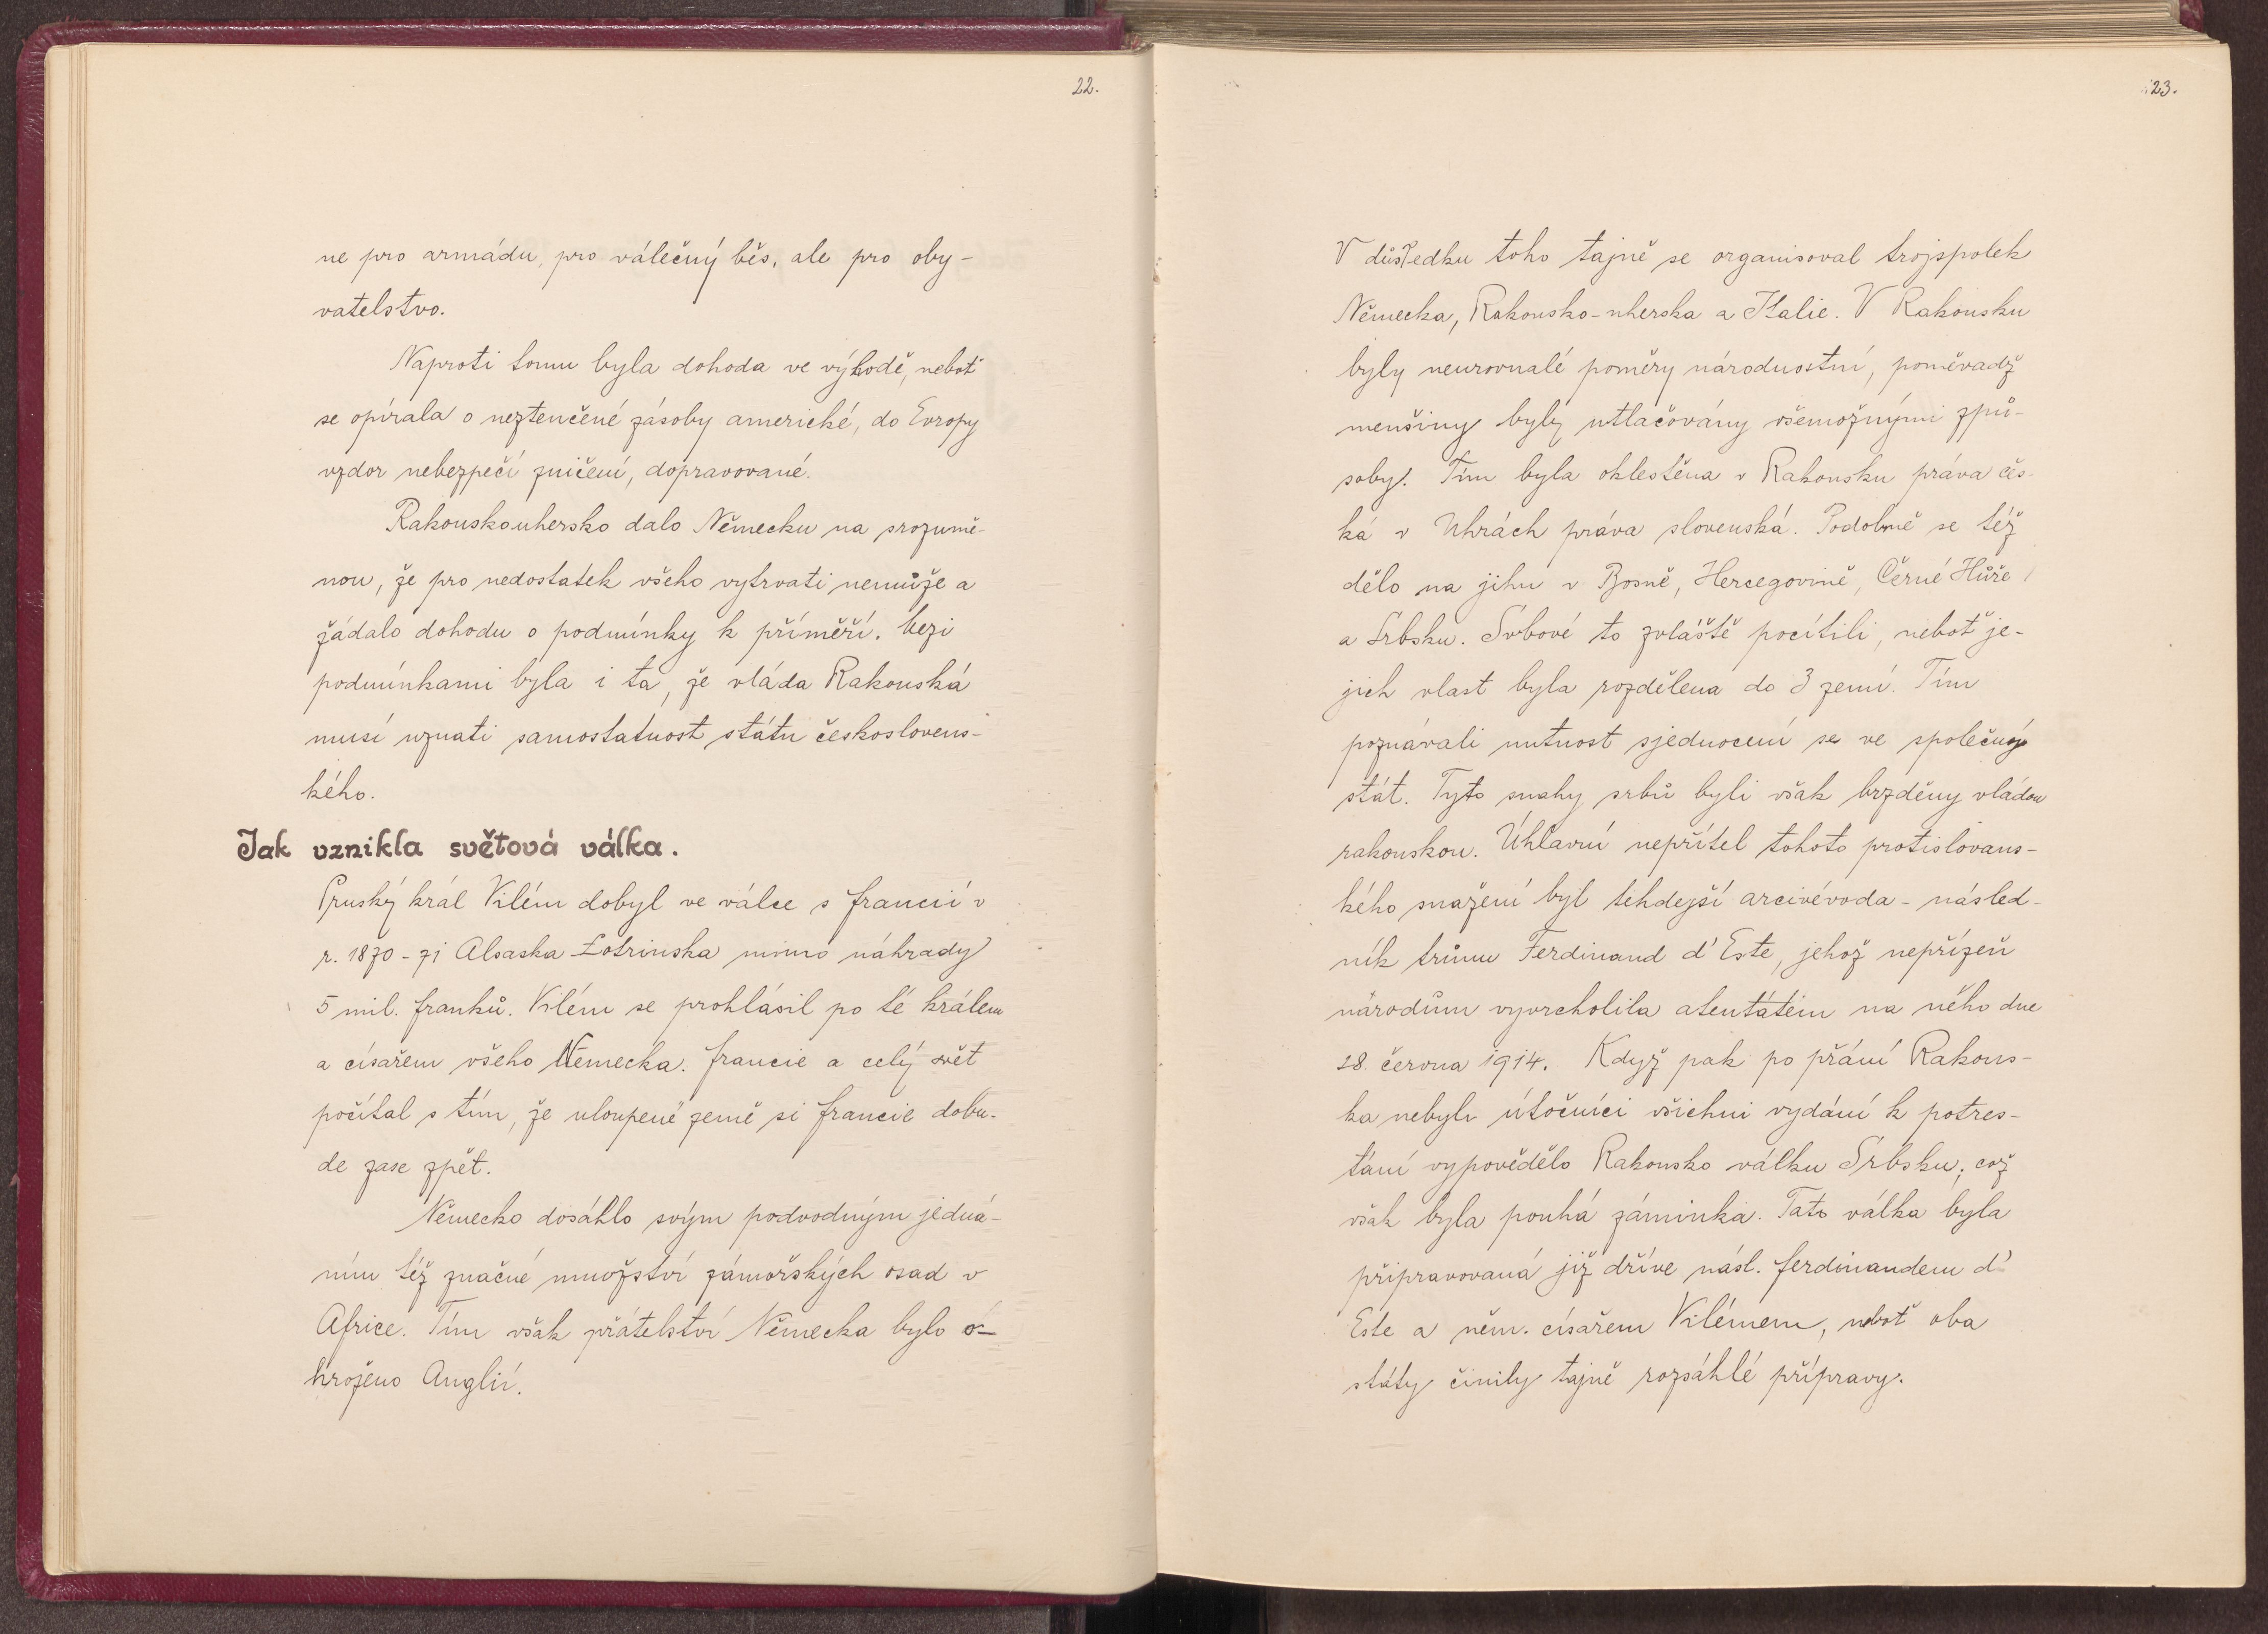 22.
ne pro armádu, pro válečný běs, ale pro oby-
vatelstvo.
Naproti tomu byla dohoda ve výhodě, neboť
se opírala o neztenčené zásoby americké, do Evropy
vzdor nebezpečí zničení, dopravované.
Rakouskouhersko dalo Německu na srozumě-
nou, že pro nedostatek všeho vytrvati nemůže a
žádalo dohodu o podmínky k příměří. bezi
podmínkami byla i ta, že vláda Rakouská
musí uznati samostatnost státu českosloven-
kého.
Jak vznikla světová válka.
Pruský král Vilém dobyl ve válce s francií v
r. 1870-71 Alsaska Lotrinska mimo náhrady
5 mil. franků. Vilém se prohlásil po té králem
a císařem všeho Německa. francie a celý svět
počítal s tím, že uloupené země si francie dobu-
de zase zpět.
Německo dosáhlo svým podvodným jedná-
ním též značné množství zámořských osad v
Africe. Tím však přátelství Německa bylo o-
hroženo Anglií.
23.
V důsledku toho tajně se organisoval trojspolek
Německa, Rakousko-uherska a Italie. V Rakousku
byly neurovnalé poměry národnostní, poněvadž
menšiny byly utlačovány všemožnými způ-
soby. Tím byla oklestěna v Rakousku práva čes-
ká v Uhrách práva slovenská. Podobně se též
dělo na jihu v Bosně, Hercegovině, Černé Hůře
a Srbsku. Srbové to zvláště pocítili, neboť je-
jich vlast byla rozdělena do 3 zemí. Tím
poznávali nutnost sjednocení se ve společný
stát. Tyto snahy srbů byli však brzděny vládou
rakouskou. Úhlavní nepřítel tohoto protislovans-
kého snažení byl tehdejší arcivévoda - násled-
ník trůnu Ferdinand d'Este, jehož nepřízeň
národům vyvrcholila atentátem na něho dne
28. června 1914. Když pak po přání Rakous-
ka nebyli útočníci všichni vydání k potres-
tání vypovědělo Rakousko válku Srbsku, což
však byla pouhá záminka. Tato válka byla
připravovaná již dříve násl. ferdinandem d'
Este a něm. císařem Vilémem, neboť oba
státy činily tajně rozsáhlé přípravy.